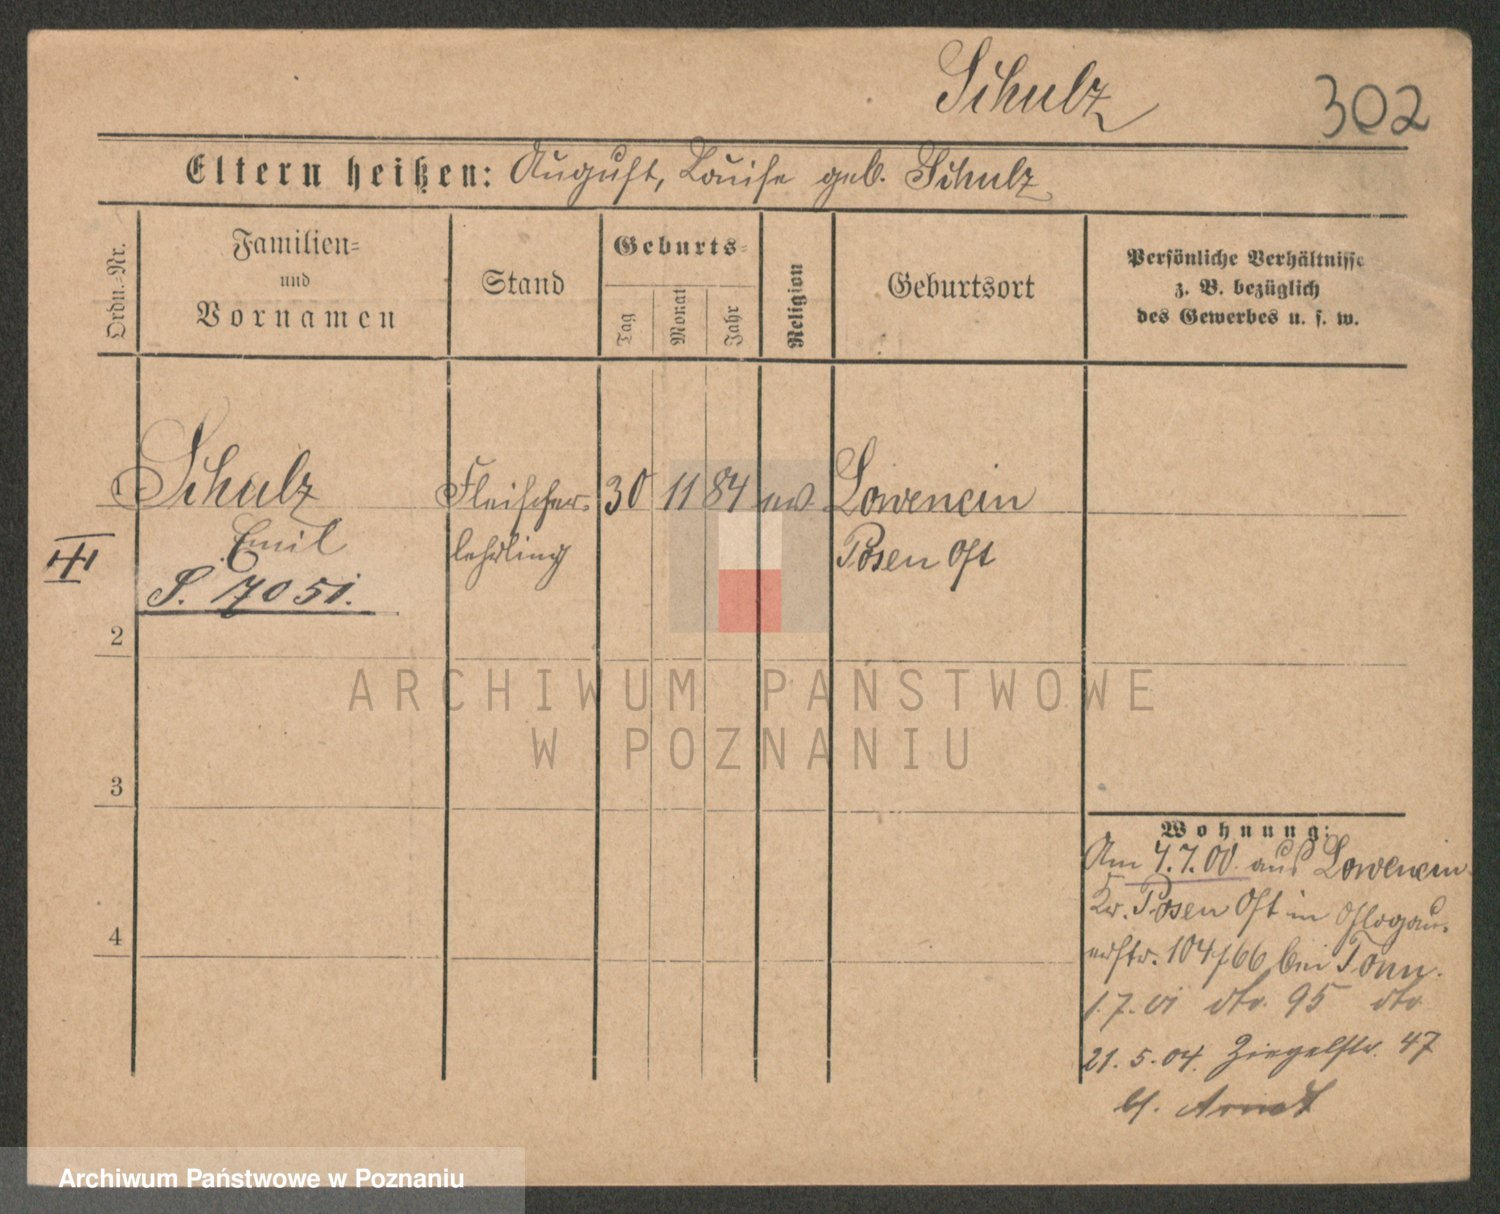 Schulz
302
Eltern heißen: August, Louise geb. Schulz
Ordn.-Nr.
Familien-
und
Vornamen
Stand
Geburts-
Tag
Monat
Jahr
Religion
Geburtsort
Persönliche Verhältnisse
z. B. bezüglich
des Gewerbes u. s. w.
1 Schulz Fleischer- 30 11 84 ev. Lowencin
Emil lehrling Posen Ost
III
S. 7051.
2
ARCHIWUM PAŃSTWOWE
W POZNANIU
3
Wohnung:
Am 4.7.00. aus Lowencin
Kr. Posen Ost in Glogau-
erstr. 104/66 bei Tonn.
1.7.01 dto. 95 dto
21.5.04. Ziegelstr. 47
b/. Arndt
4
Archiwum Państwowe w Poznaniu